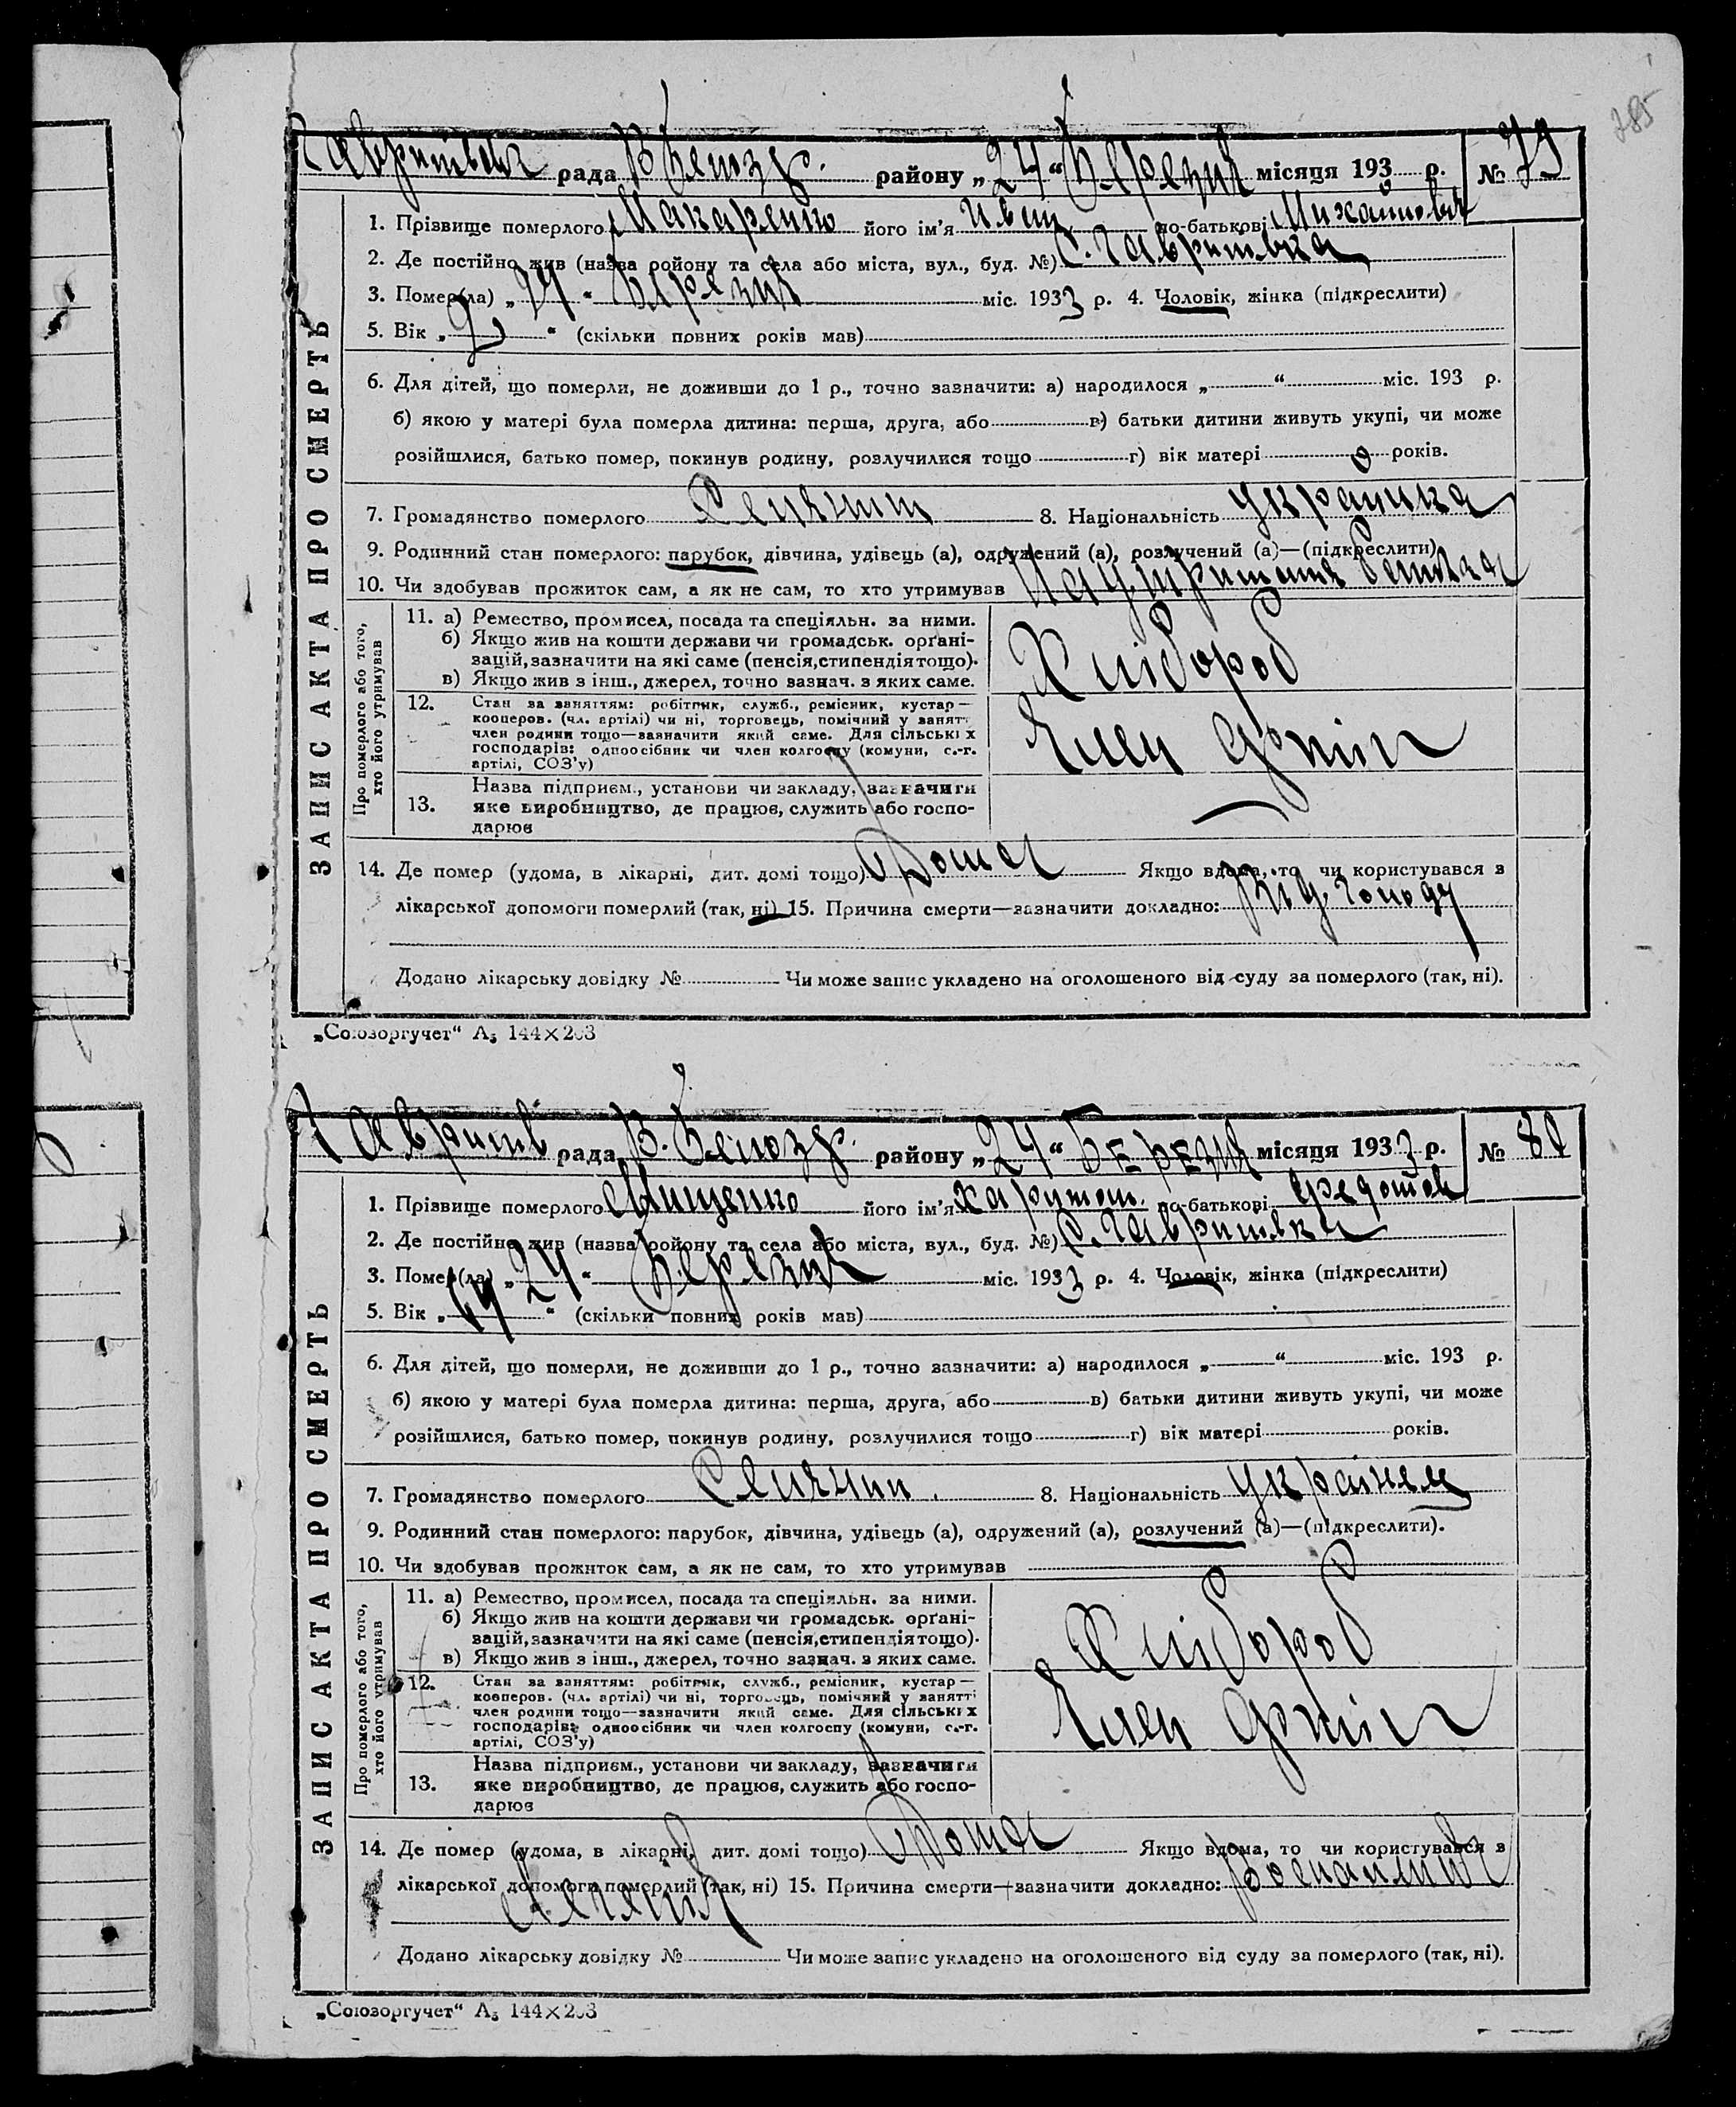 285
рада району „24“ Березня місяця 193 р. № 79
ЗАПИС АКТА ПРО СМЕРТЬ
1. Прізвище померлого Макаренко його ім'я Иван по-батькові Михайлович
2. Де постійно жив (назва ройону та села або міста, вул., буд. №) с. Гавритівка
3. Помер(ла) „24“ Березня міс. 1933 р. 4. Чоловік, жінка (підкреслити)
5. Вік „2“ (скільки повних років мав)
6. Для дітей, що померли, не доживши до 1 р., точно зазначити: а) народилося „ “ міс. 193 р.
б) якою у матері була померла дитина: перша, друга, або в) батьки дитини живуть укупі, чи може
розійшлися, батько помер, покинув родину, розлучилися тощо г) вік матері років.
7. Громадянство померлого Селянин 8. Національність
9. Родинний стан померлого: парубок, дівчина, удівець (а), одружений (а), розлучений (а)—(підкреслити)
10. Чи здобував прожиток сам, а як не сам, то хто утримував
Про померлого або того, хто його утримував
11. а) Ремество, промисел, посада та спеціяльн. за ними.
б) Якщо жив на кошти держави чи громадськ. орґані-
зацій, зазначити на які саме (пенсія, стипендія тощо).
в) Якщо жив з інш., джерел, точно зазнач. з яких саме.
Хлібороб
12. Стан за заняттям: робітник, служб., ремісник, кустар—
кооперов. (чл. артілі) чи ні, торговець, помічний у занятт
член родини тощо—зазначити який саме. Для сільських
господарів: одноосібник чи член колгоспу (комуни, с.-г.
артілі, СОЗ'у)
Член Артілі
13. Назва підприєм., установи чи закладу, зазначити
яке виробництво, де працює, служить або госпо-
дарює
14. Де помер (удома, в лікарні, дит. домі тощо) Дома Якщо вдома, то чи користувався з
лікарської допомоги померлий (так, ні) 15. Причина смерти—зазначити докладно: Від голоду
Додано лікарську довідку № Чи може запис укладено на оголошеного від суду за померлого (так, ні).
„Союзоргучет“ А5 144×203
Гавритів рада району „24“ Березня місяця 1933 р. № 80
ЗАПИС АКТА ПРО СМЕРТЬ
1. Прізвище померлого Мищенко його ім'я Харитон по-батькові Федотов
2. Де постійно жив (назва ройону та села або міста, вул., буд. №) с. Гавритівка
3. Помер(ла) „24“ Березня міс. 1933 р. 4. Чоловік, жінка (підкреслити)
5. Вік „ “ (скільки повних років мав)
6. Для дітей, що померли, не доживши до 1 р., точно зазначити: а) народилося „ “ міс. 193 р.
б) якою у матері була померла дитина: перша, друга, або в) батьки дитини живуть укупі, чи може
розійшлися, батько помер, покинув родину, розлучилися тощо г) вік матері років.
7. Громадянство померлого Селянин 8. Національність Українец
9. Родинний стан померлого: парубок, дівчина, удівець (а), одружений (а), розлучений (а)—(підкреслити).
10. Чи здобував прожиток сам, а як не сам, то хто утримував
Про померлого або того, хто його утримував
11. а) Ремество, промисел, посада та спеціяльн. за ними.
б) Якщо жив на кошти держави чи громадськ. орґані-
зацій, зазначити на які саме (пенсія, стипендія тощо).
в) Якщо жив з інш., джерел, точно зазнач. з яких саме.
Хлібороб
12. Стан за заняттям: робітник, служб., ремісник, кустар—
кооперов. (чл. артілі) чи ні, торговець, помічний у занятті
член родини тощо—зазначити який саме. Для сільських
господарів: одноосібник чи член колгоспу (комуни, с.-г.
артілі, СОЗ'у)
Член Артілі
13. Назва підприєм., установи чи закладу, зазначити
яке виробництво, де працює, служить або госпо-
дарює
14. Де помер (удома, в лікарні, дит. домі тощо) Дома Якщо вдома, то чи користувався з
лікарської допомоги померлий (так, ні) 15. Причина смерти—зазначити докладно:
Додано лікарську довідку № Чи може запис укладено на оголошеного від суду за померлого (так, ні).
„Союзоргучет“ А5 144×203